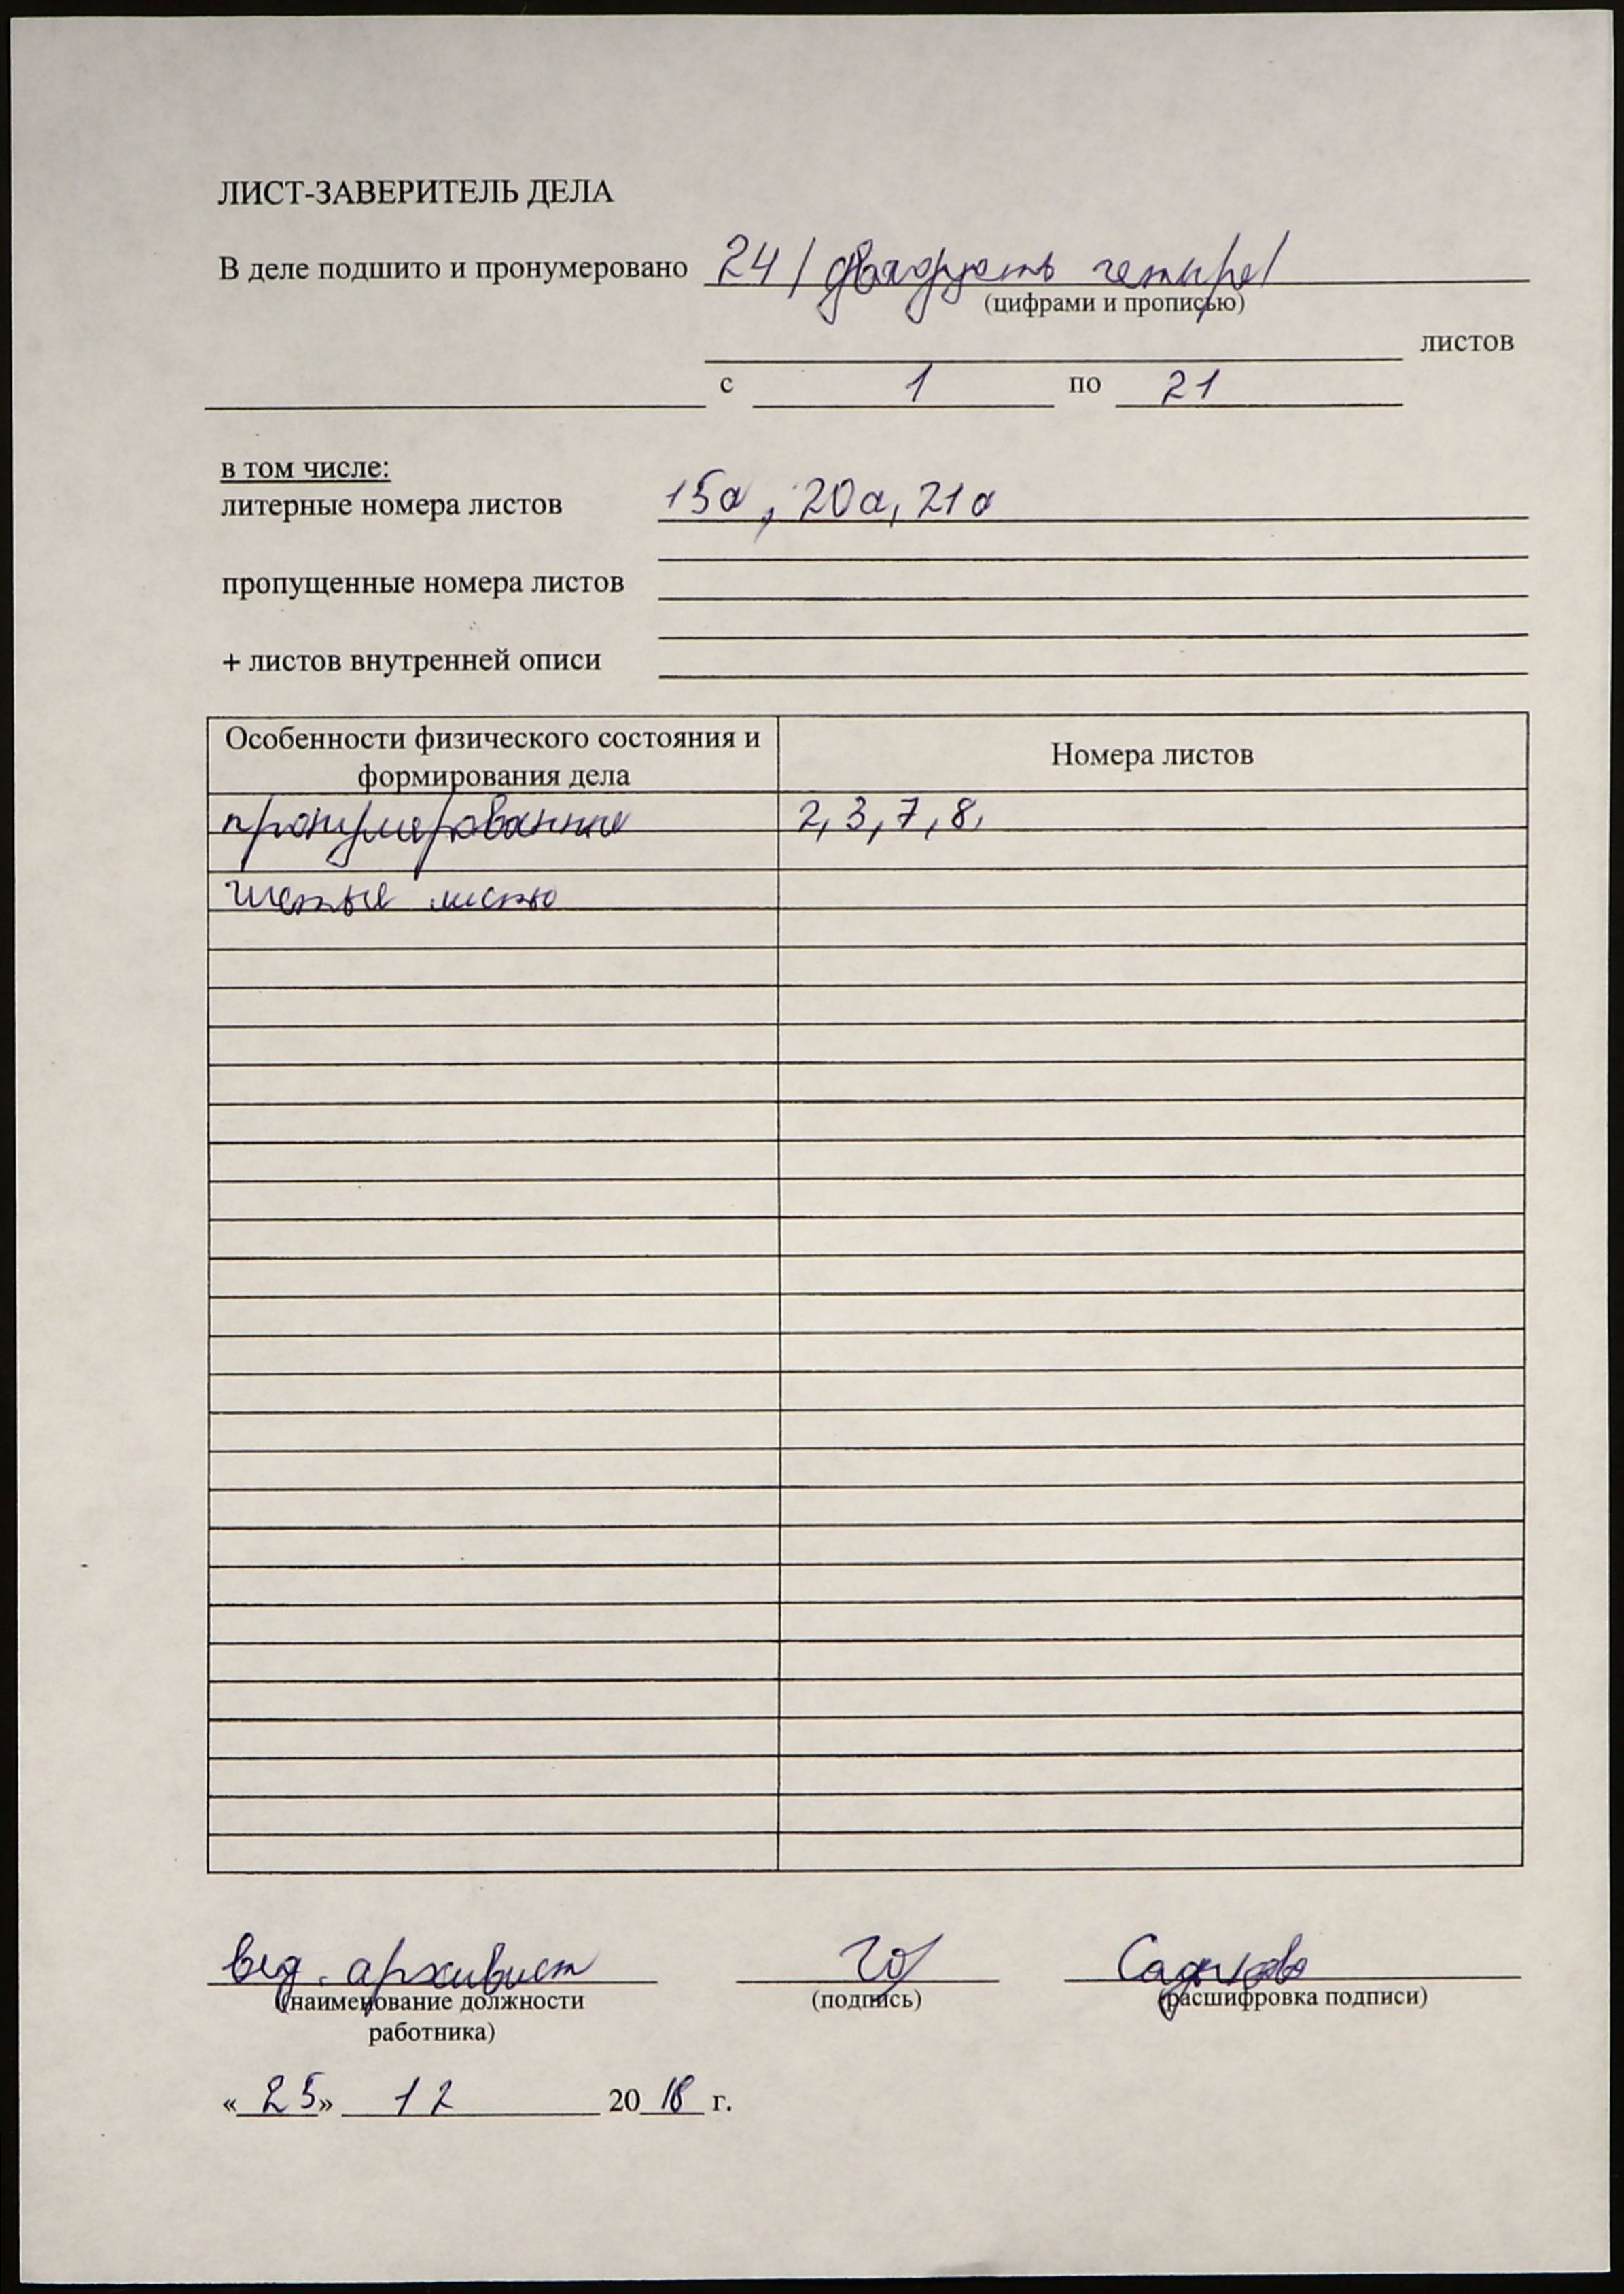 ЛИСТ-ЗАВЕРИТЕЛЬ ДЕЛА
В деле подшито и пронумеровано 24 / двадцать четыре/
(цифрами и прописью)
листов
с 1 по 21
в том числе:
литерные номера листов 15а, 20а, 21а
пропущенные номера листов
+ листов внутренней описи
Особенности физического состояния и Номера листов
формирования дела
пронумерованные 2, 3, 7, 8,
чистые листы
вед. архивист Садикова
(наименование должности (подпись) (расшифровка подписи)
работника)
« 25 » 12 20 18 г.